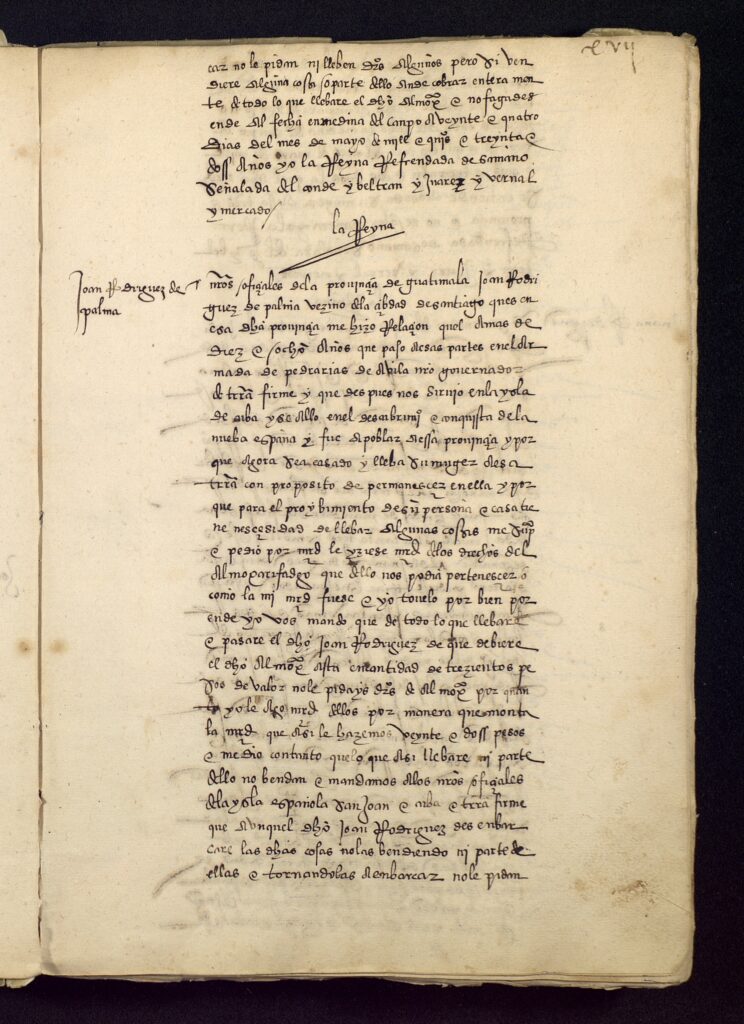 xvij
car no le pidan ni lleben drõs algunos pero si ven
diere alguna cosa o parte dello ande cobrar entera men
te de todo lo que llebare el dhõ almoxº e no fagades
ende al fecha en medina del campo a veynte e quatro
dias del mes de mayo de mill e quiºs e treynta e
doss años yo la Reyna Refrendada de samano
señalada del conde y beltran y xuarez y vernal
y mercado /
la Reyna
Joan Rodriguez de
palma
nrõs ofiçiales dela provinçia de guatimala Joan Rodri
guez de palma vezino dela çibdad de santiago ques en
esa dhã provinçia me hizo Relaçion quel a mas de
diez e ocho años que paso a esas partes en el ar
mada de pedrarias de avila nrõ governador
de trrã firme y que despues nos sirvio en la ysla
de cuba y se allo en el descubrimiº e conquista de la
nueba españa y fue a poblar a essa provinçia y por
que agora sea casado y lleba su muger a esa
trrã con proposito de permanescer en ella y por
que para el probymiento de su persona e casa tie
ne nescesidad de llebar algunas cosas me supº
e pedio por mrd le yziese mrd delos derechos del
almoxarifadgo que dello nos podia pertenescer o
como la mi mrd fuese e yo tovelo por bien por
ende yo vos mando que de todo lo que llebare
e pasare el dhõ Joan Rodriguez de que debiere
el dhõ almoxº asta en cantidad de trezientos pe
sos de valor no le pidays drõs de almoxº por quan
to yo le ago mrd dellos por manera que monta
la mrd que asi le hazemos veynte e doss pesos
e medio con tanto que lo que asi llebare ni parte
dello no bendan e mandamos alos nrõs ofiçiales
dela ysla española san Joan e cuba e trrã firme
que aunquel dhõ Joan Rodriguez desenbar
care las dhãs cosas no las bendiendo ni parte de
ellas e tornandolas a enbarcar no le pidan